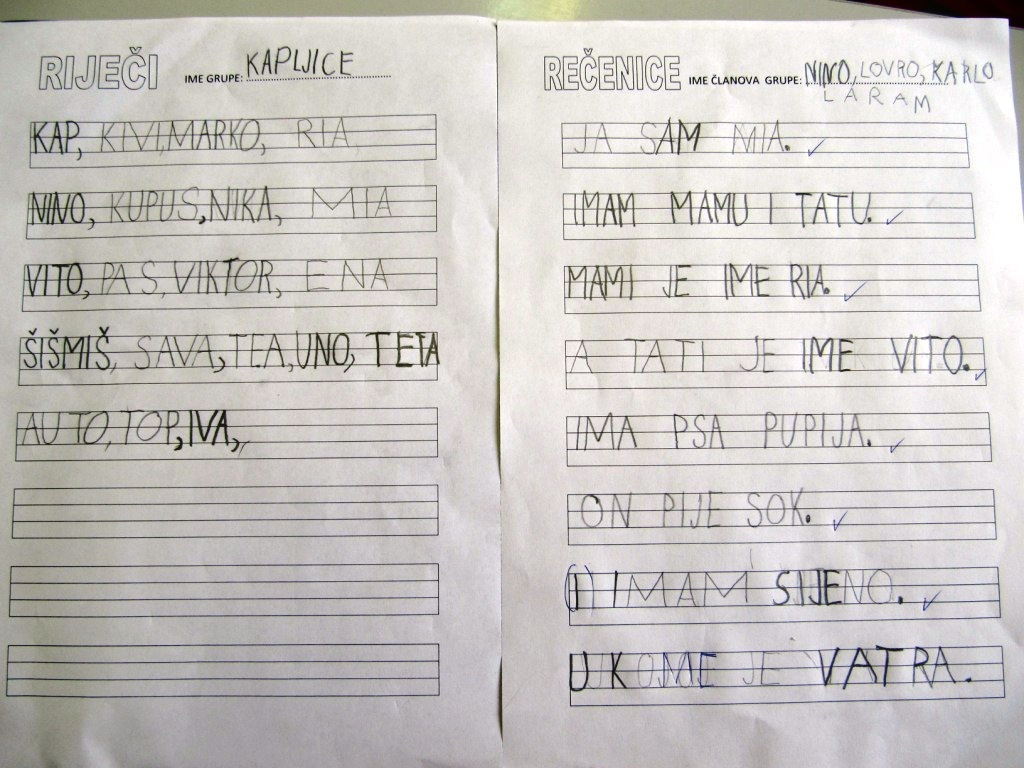 RIJEČI IME GRUPE: KAPLJICE
KAP, KIVI, MARKO, RIA
NINO, KUPUS, NIKA, MIA
VITO, PAS, VIKTOR, ENA
ŠIŠMIŠ, SAVA, TEA, UNO, TETA
AUTO, TOP, IVA,
REČENICE IME ČLANOVA GRUPE: NINO, LOVRO, KARLO
LARA M
JA SAM MIA.
IMAM MAMU I TATU.
MAMI JE IME RIA.
A TATI JE IME VITO.
IMA PSA PUPIJA.
ON PIJE SOK.
(I) IMAM SIJENO.
U KOME JE VATRA.